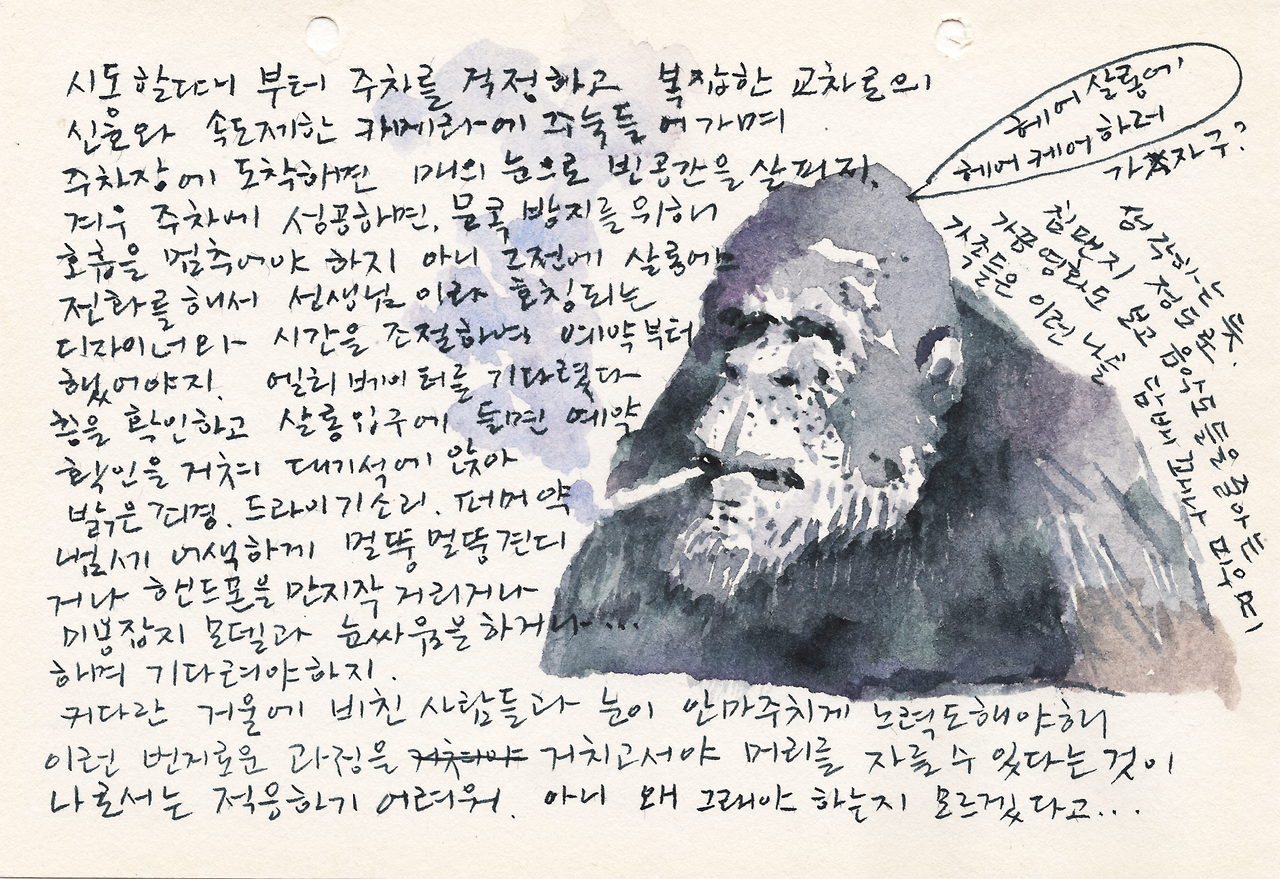 시동 할 때 부터 주차를 걱정하고 복잡한 교차로의
신호와 속도제한 카메라에 주눅들어가며
주차장에 도착하면 매의 눈으로 빈공간을 살피지.
겨우 주차에 성공하면, 문콕 방지를 위해
호흡을 멈추어야 하지 아니 그전에 살롱에는
전화를 해서 선생님 이라 호칭되는
디자이너와 시간을 조절하여 예약부터
했어야지. 엘리베이터를 기다렸다
층을 확인하고 살롱입구에 들면 예약
확인을 거쳐 대기석에 앉아
밝은 조명. 드라이기소리. 퍼머약
냄새에 어색하게 멀뚱멀뚱 견디
거나 핸드폰을 만지작 거리거나
미용잡지 모델과 눈싸움을 하거나...
하며 기다려야하지.
커다란 거울에 비친 사람들과 눈이 안마주치게 노력도해야해
이런 번거로운 과정을 거치고서야 머리를 자를 수 있다는 것이
나로서는 적응하기 어려워. 아니 왜 그래야 하는지 모르겠다고...
헤어 살롱에
헤어 케어하러
가자구?
가족들은 이런 나를 담배 꽤나 피우며
가끔 영화도 보고 음악도 들을줄아는
침팬지 정도로
생각하는 듯.